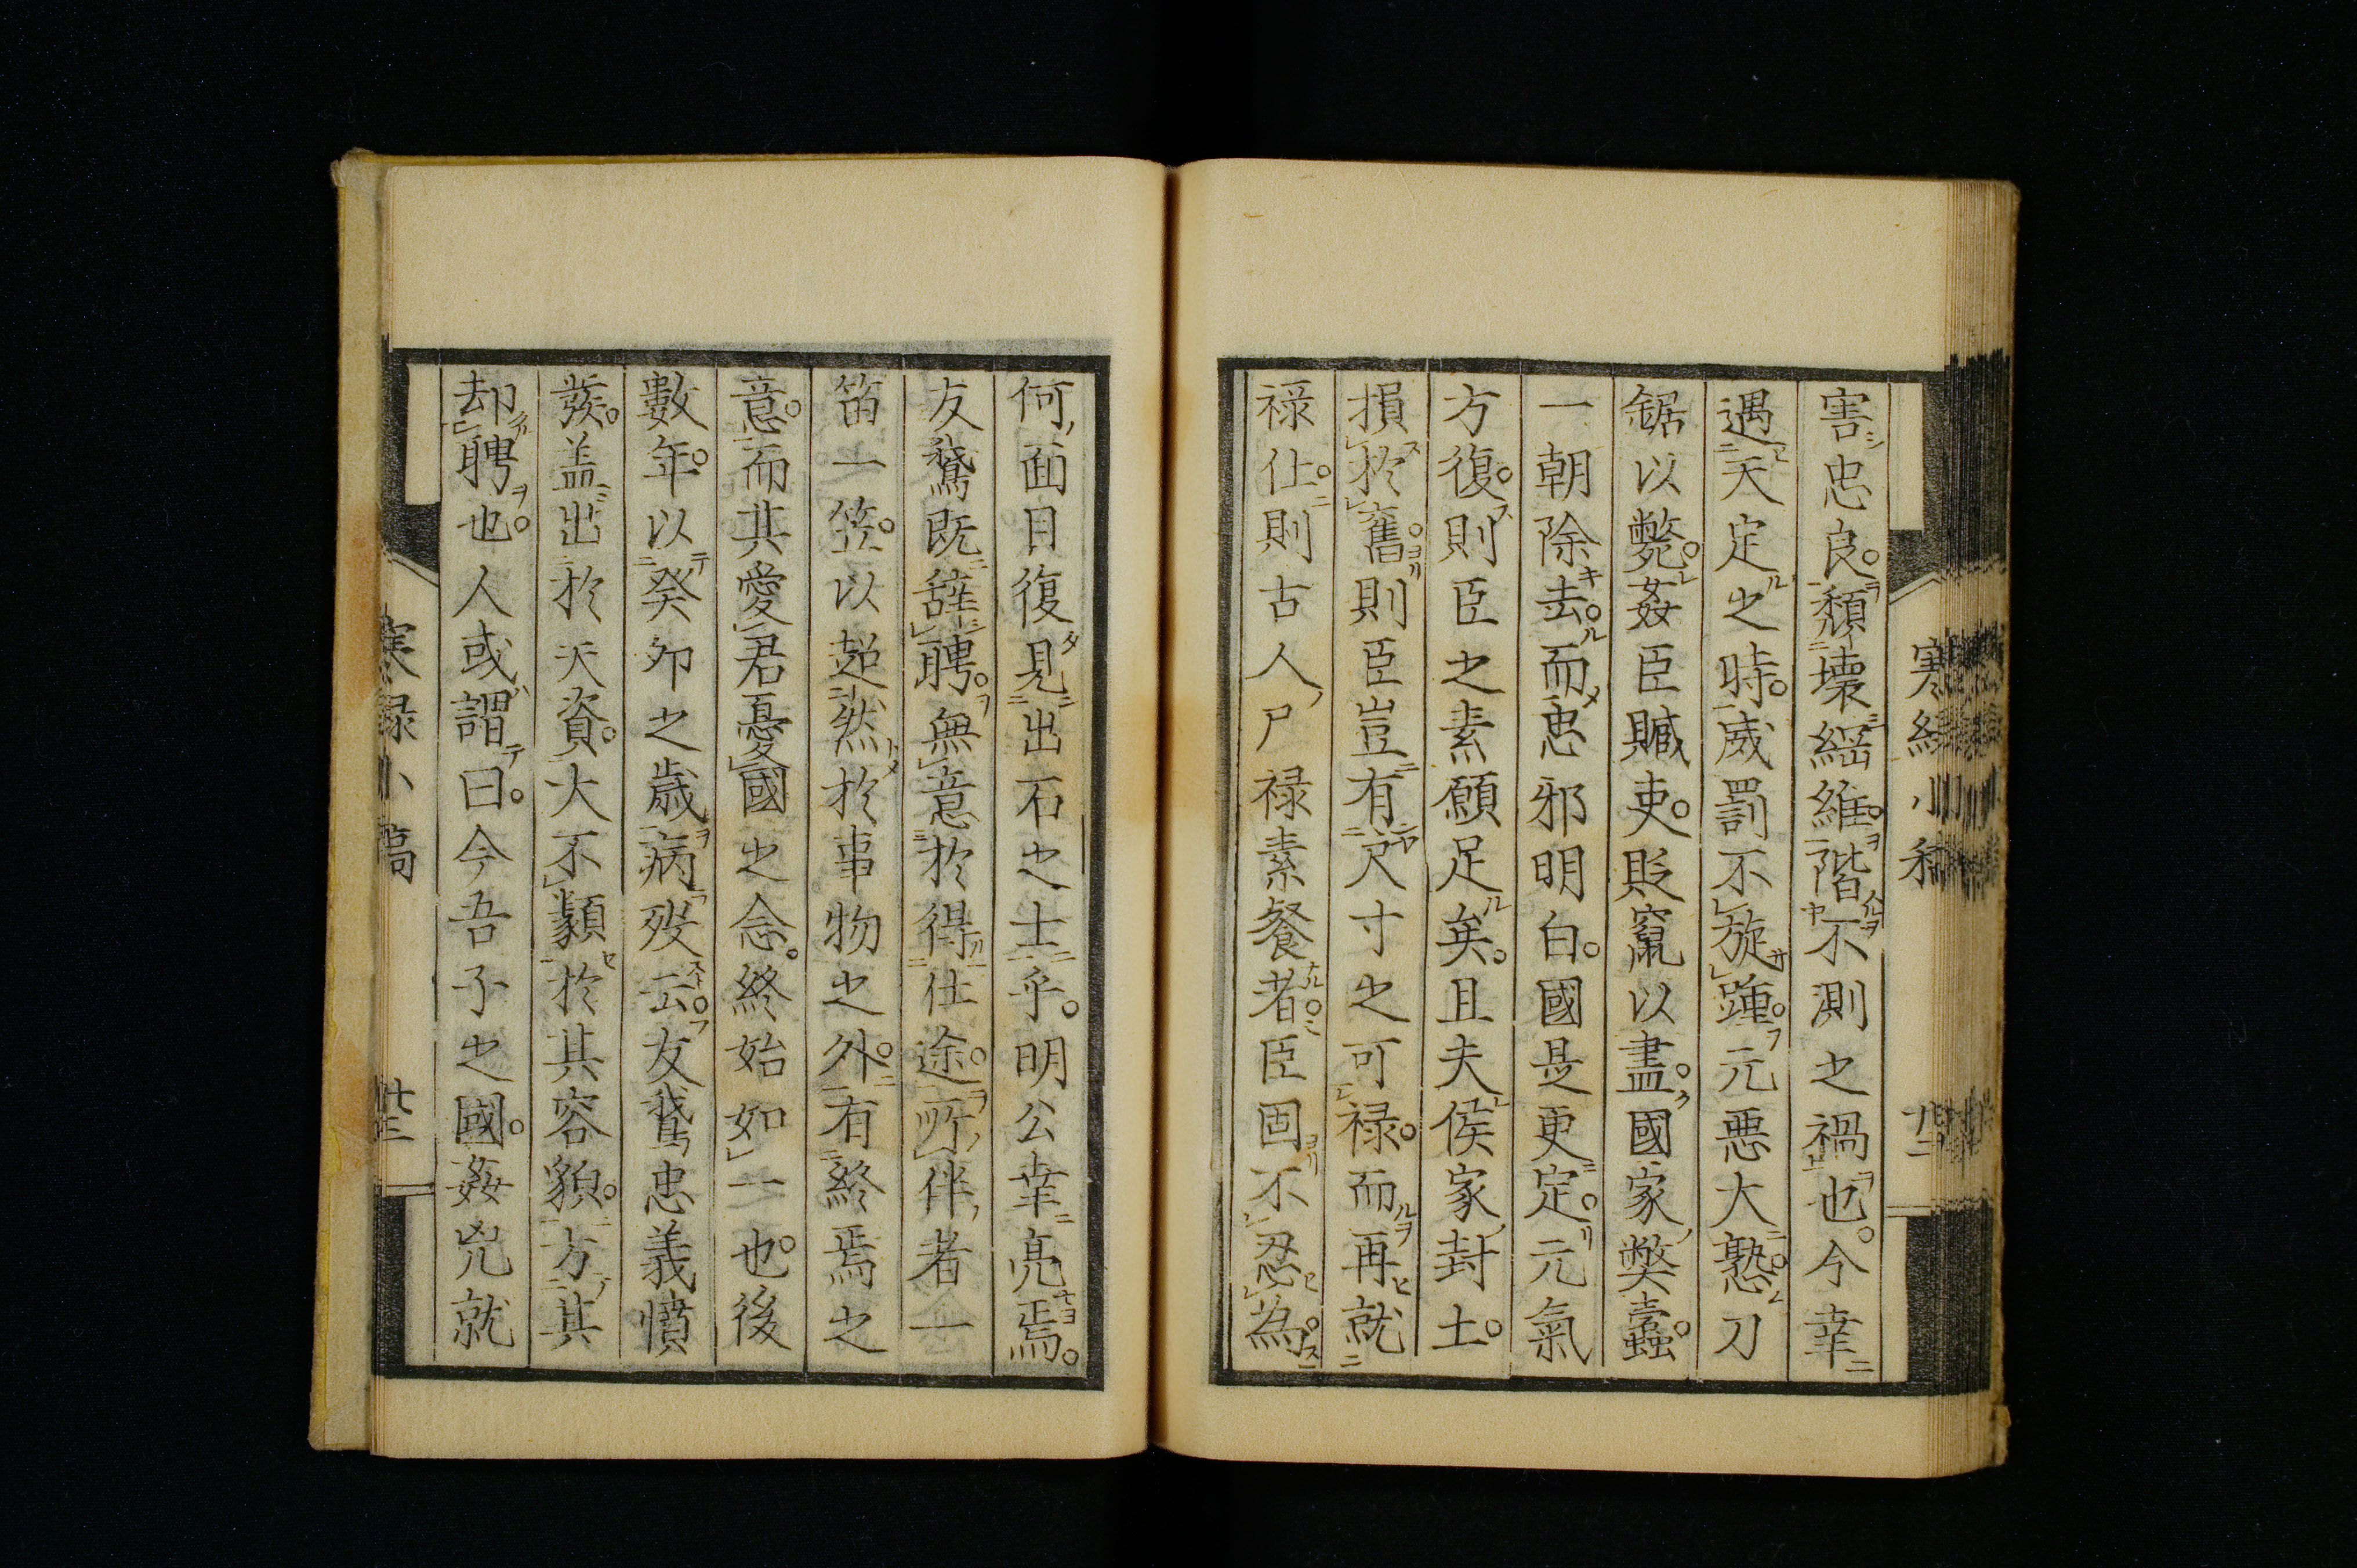 害忠良。頽壞綱維。階不測之禍也。今幸
遇天定之時。威罰不旋踵。元惡大憝。刀
鋸以斃。姦臣贓吏。貶竄以盡。國家弊蠹。
一朝除去。而忠邪明白。國是更定。元氣
方復。則臣之素願足矣。且夫侯家封土。
損於舊。則臣豈有尺寸之可祿。而再就
祿仕。則古人尸祿素餐者。臣固不忍爲。
何面目復見出石之士乎。明公幸亮焉。
友鵞既辭聘。無意於得仕途。所伴者一
笛一笠。以超然於事物之外。有終焉之
意。而其愛君憂國之念。終始如一也。後
數年。以癸夘之歳病歿云。友鵞忠義憤
發。盖出於天資。大不類於其容貌。方其
却聘也。人或謂曰。今吾子之國。姦兇就
小稿